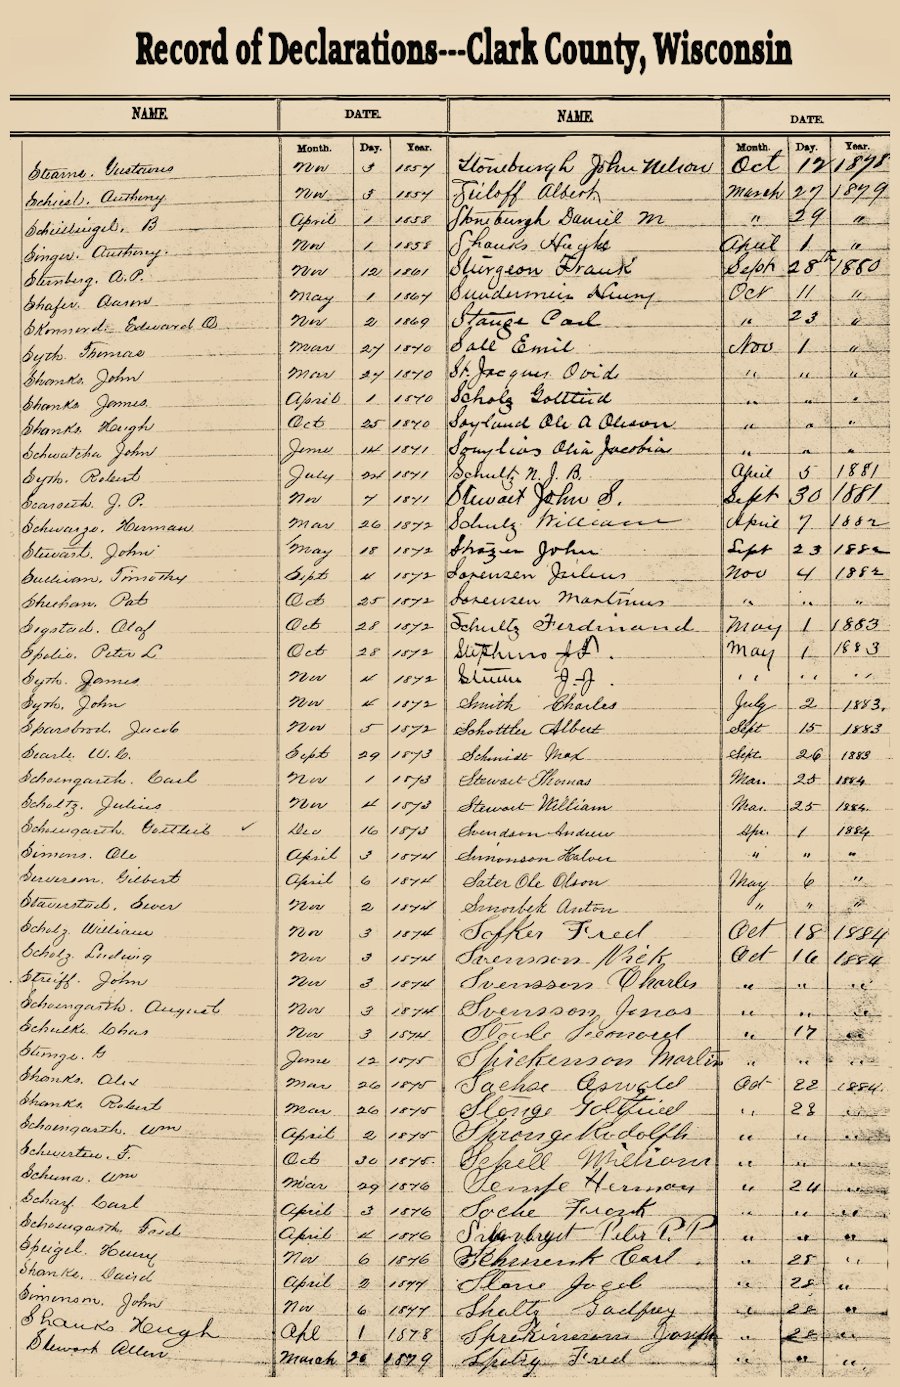 Record of Declarations---Clark County, Wisconsin
NAME. DATE. NAME. DATE.
Month. Day. Year. Month. Day. Year.
Stearns. Gustavus Nov 3 1857
Schiesl. Anthony Nov 3 1857
B April 1 1858
Singer. Anthony. Nov 1 1858
Sternberg. A.P. Nov 12 1861
Shafer. Aaron May 1 1867
Edward O Nov 2 1869
Syth. Thomas Mar 27 1870
Shanks. John Mar 27 1870
Shanks. James. April 1 1870
Shanks. Hugh Oct 25 1870
Schwatcha John June 14 1871
Syth. Robert July 24 1871
J. P. Nov 7 1871
Schwarze. Herman Mar 26 1872
Stewart. John May 18 1872
Sullivan. Timothy Sept 4 1872
Sheehan. Pat Oct 25 1872
Sigstad. Olaf Oct 28 1872
Peter L Oct 28 1872
Syth. James Nov 4 1872
Syth. John Nov 4 1872
Jacob Nov 5 1872
Searle W. C. Sept 29 1873
Schoengarth. Carl Nov 1 1873
Scholtz. Julius Nov 4 1873
Schoengarth. Gottleib ✓ Dec 16 1873
Simons. Ole April 3 1874
Severson. Gilbert April 6 1874
Staverstad. Sever Nov 2 1874
Scholz. William Nov 3 1874
Scholz. Ludwig Nov 3 1874
Streiff. John Nov 3 1874
Schoengarth. August Nov 3 1874
Schulke. Chas Nov 3 1874
G June 12 1875
Shanks. Alex Mar 26 1875
Shanks. Robert Mar 26 1875
Schoengarth. Wm April 2 1875
F. Oct 30 1875.
Wm Mar 29 1876
Scharf. Carl April 3 1876
Schoengarth. Fred April 4 1876
Speigel. Henry Nov 6 1876
Shanks. David April 2 1877
Simonson. John Nov 6 1877
Shanks Hugh Apl 1 1878
Stewart Allen March 26 1879
Stoneburgh John Nelson Oct 12 1878
Albert March 27 1879
Stoneburgh Daniel M " 29 "
Shanks Hugh April 1 "
Sturgeon Frank Sept 28th 1880
Oct 11 "
Stange Carl " 23 "
Sale Emil Nov 1 "
St. Jacques Ovid " " "
Scholz Gottlieb " " "
Soyland Ole A Oleson " " "
" " "
Schultz N. J. B. April 5 1881
Stewart John S. Sept 30 1881
Schulz William April 7 1882
John Sept 23 1882
Sorensen Julius Nov 4 1882
Sorensen Martinus " " "
Schultz Ferdinand May 1 1883
May 1 1883
J. J. " " "
Smith Charles July 2 1883.
Schottler Albert Sept 15 1883
Schmidt Max Sept. 26 1883
Stewart Thomas Mar. 25 1884
Stewart William Mar. 25 1884.
Svendson Andrew Apr. 1 1884
Simonson Halvor " " "
Sater Ole Olson May 6 "
Smorbek Anton " " "
Sofker Fred Oct 18 1884
Svensson Nick Oct 16 1884
Svensson Charles " " "
Svensson Jonas " " "
Leonard " 17 "
Spickenson Martin " " "
Sachse Oswald Oct 22 1884.
Stonge Gottfried " 23 "
Spronge Rudolph " " "
Schell William " " "
Sempe Herman " 24 "
Soche Frank " " "
Peter P. P " " "
Schmenk Carl " 28 "
" 28 "
Sholtz Godfrey " 28 "
Joseph " 28 "
Fred " " "